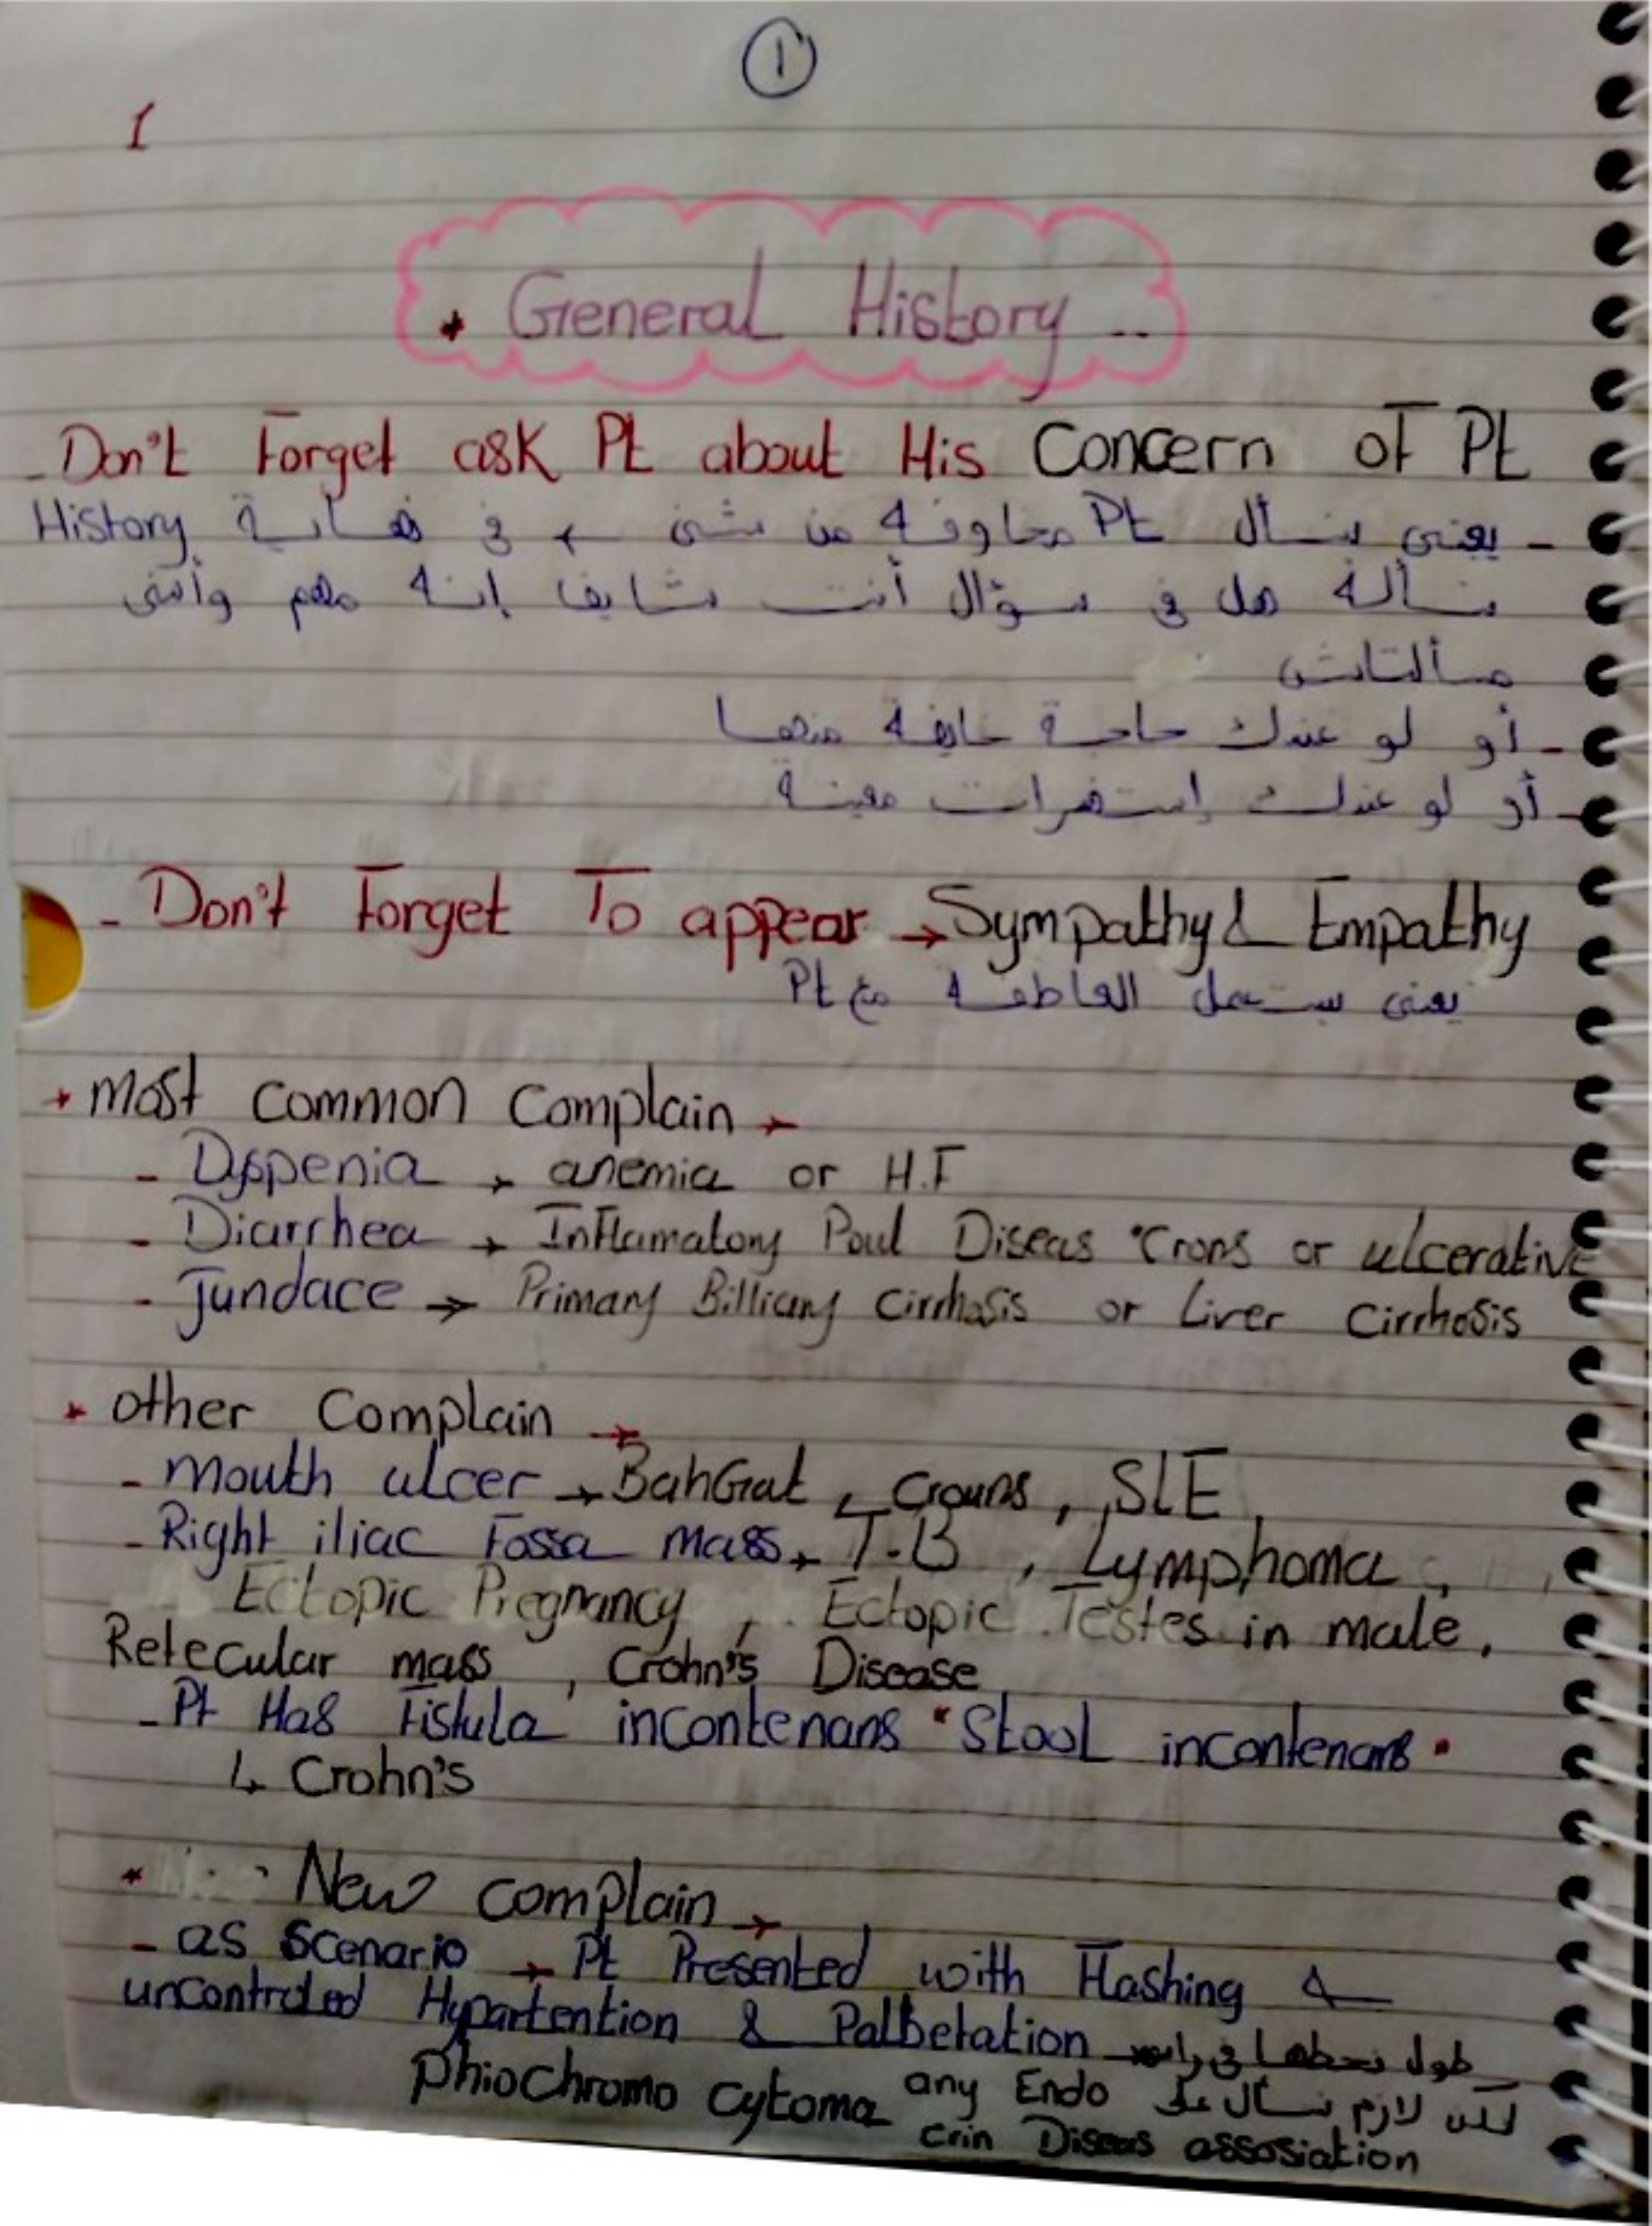 1
1
* General History ..
- Don't Forget ask Pt about His Concern of Pt
- يعنى نسأل Pt مخاوفه من شئ ← فى نهاية History
نسأله هل فى سؤال أنت شايف إنه مهم وأنى
مسألتاش
- أو لو عندك حاجة خايفة منها
- أو لو عندك إستفسرات معينة
- Don't Forget To appear → Sympathy & Empathy
يعنى بيستعمل العاطفه مع Pt
* Most common complain →
- Dyspenia → anemia or H.F
- Diarrhea → Inflamatory Poul Diseas "Crons or ulcerative
- Jundace → Primary Billiary Cirrhosis or Liver Cirrhosis
* other Complain →
- mouth ulcer → BahGat, Crouns, SLE,
- Right iliac Fossa mass → T.B, Lymphoma,
Ectopic Pregnancy, Ectopic Testes in male,
Retecular mass, Crohn's Disease
- Pt Has Fistula incontenans "Stool incontenans"
↳ Crohn's
* New complain →
- as Scenario → Pt Presented with Flashing &
uncontroled Hypartention & Palbetation → طول نحطها فى راسه
phiochromo cytoma any Endo لكن لازم نسأل على
crin Diseas assosiation